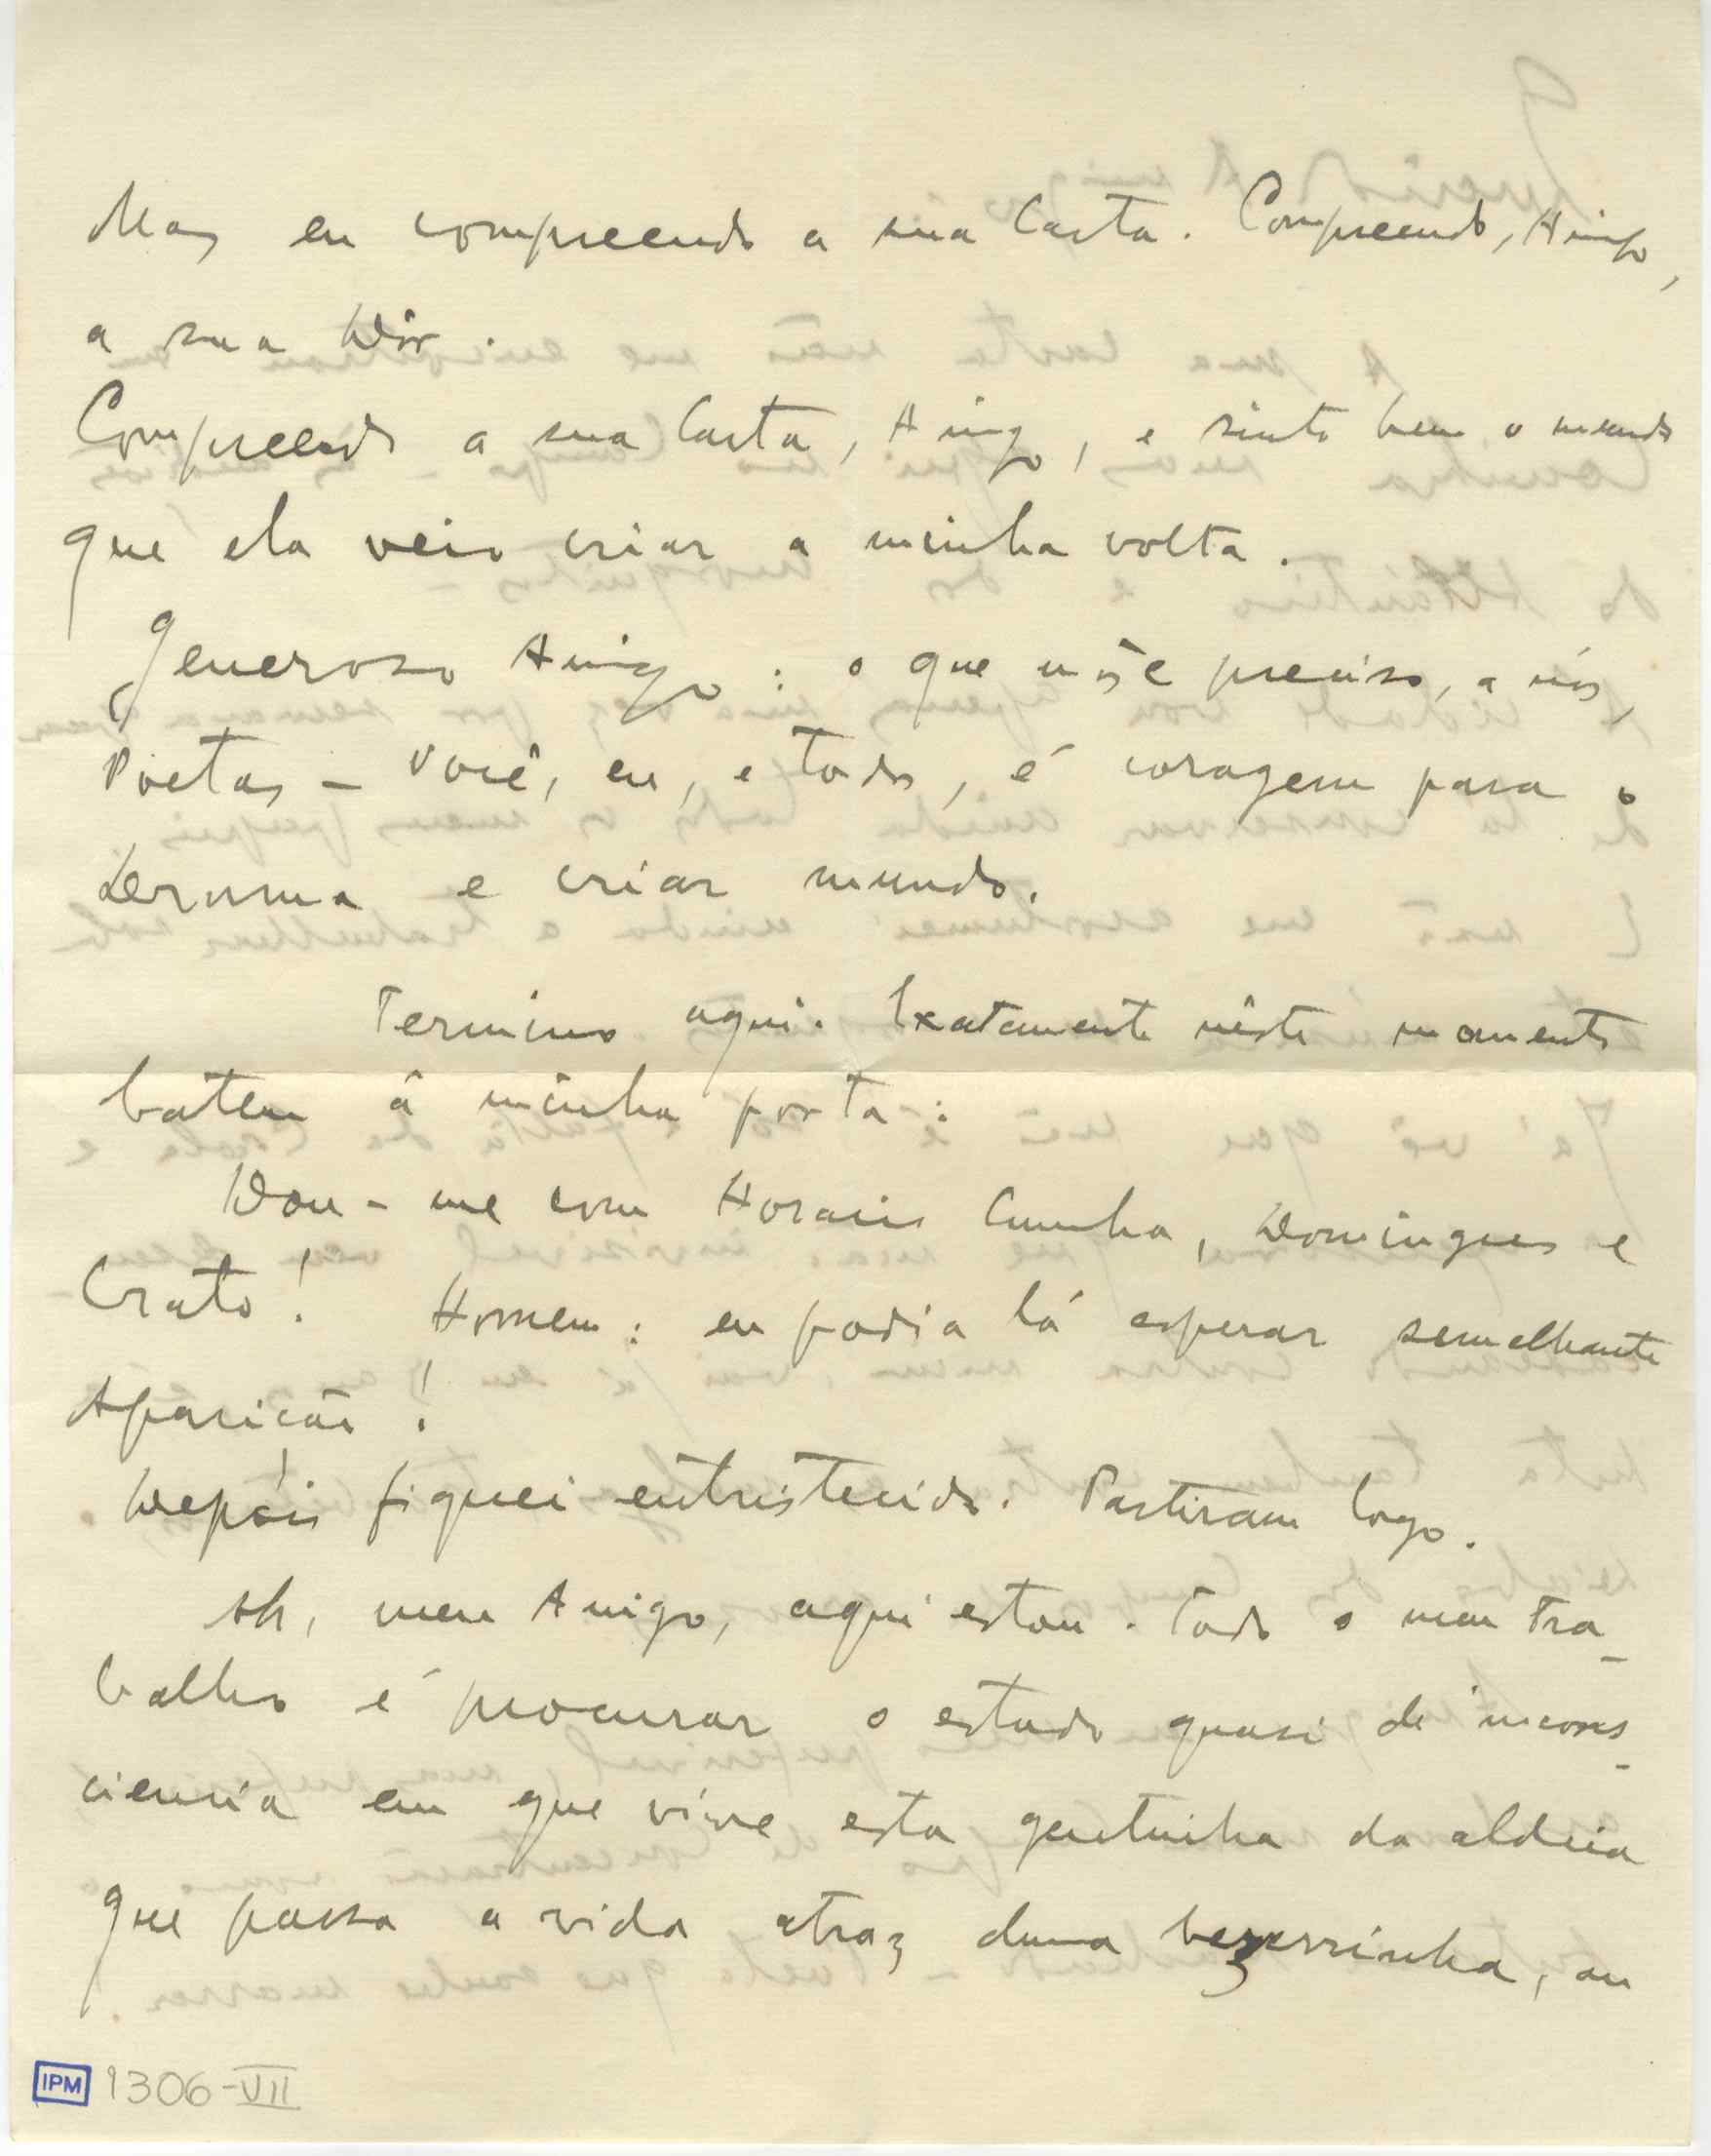 Mas eu compreendo a sua Carta. Compreendo, Amigo,
a sua Dôr.
Compreendo a sua Carta, Amigo, e sinto bem o mundo
que ela veio criar a minha volta.
Generoso Amigo: o que nos é preciso, a nós,
Poetas – Você, eu, e todos, é coragem para o
Derruma e criar mundo.
Termino aqui. Exatamente nêste momento
batem á minha porta:
Dou-me com Horacio Cunha, Domingues e
Crato! Homem: eu podia lá esperar semelhante
Aparição!
Depois fiquei entristecido. Partiram logo.
Ah, meu Amigo, aqui estou. Todo o meu tra-
balho é procurar o estado quasi de incons-
ciencia em que vive esta gentinha da aldeia
que passa a vida atraz duma bezerrinha, ou
IPM 1306-VII